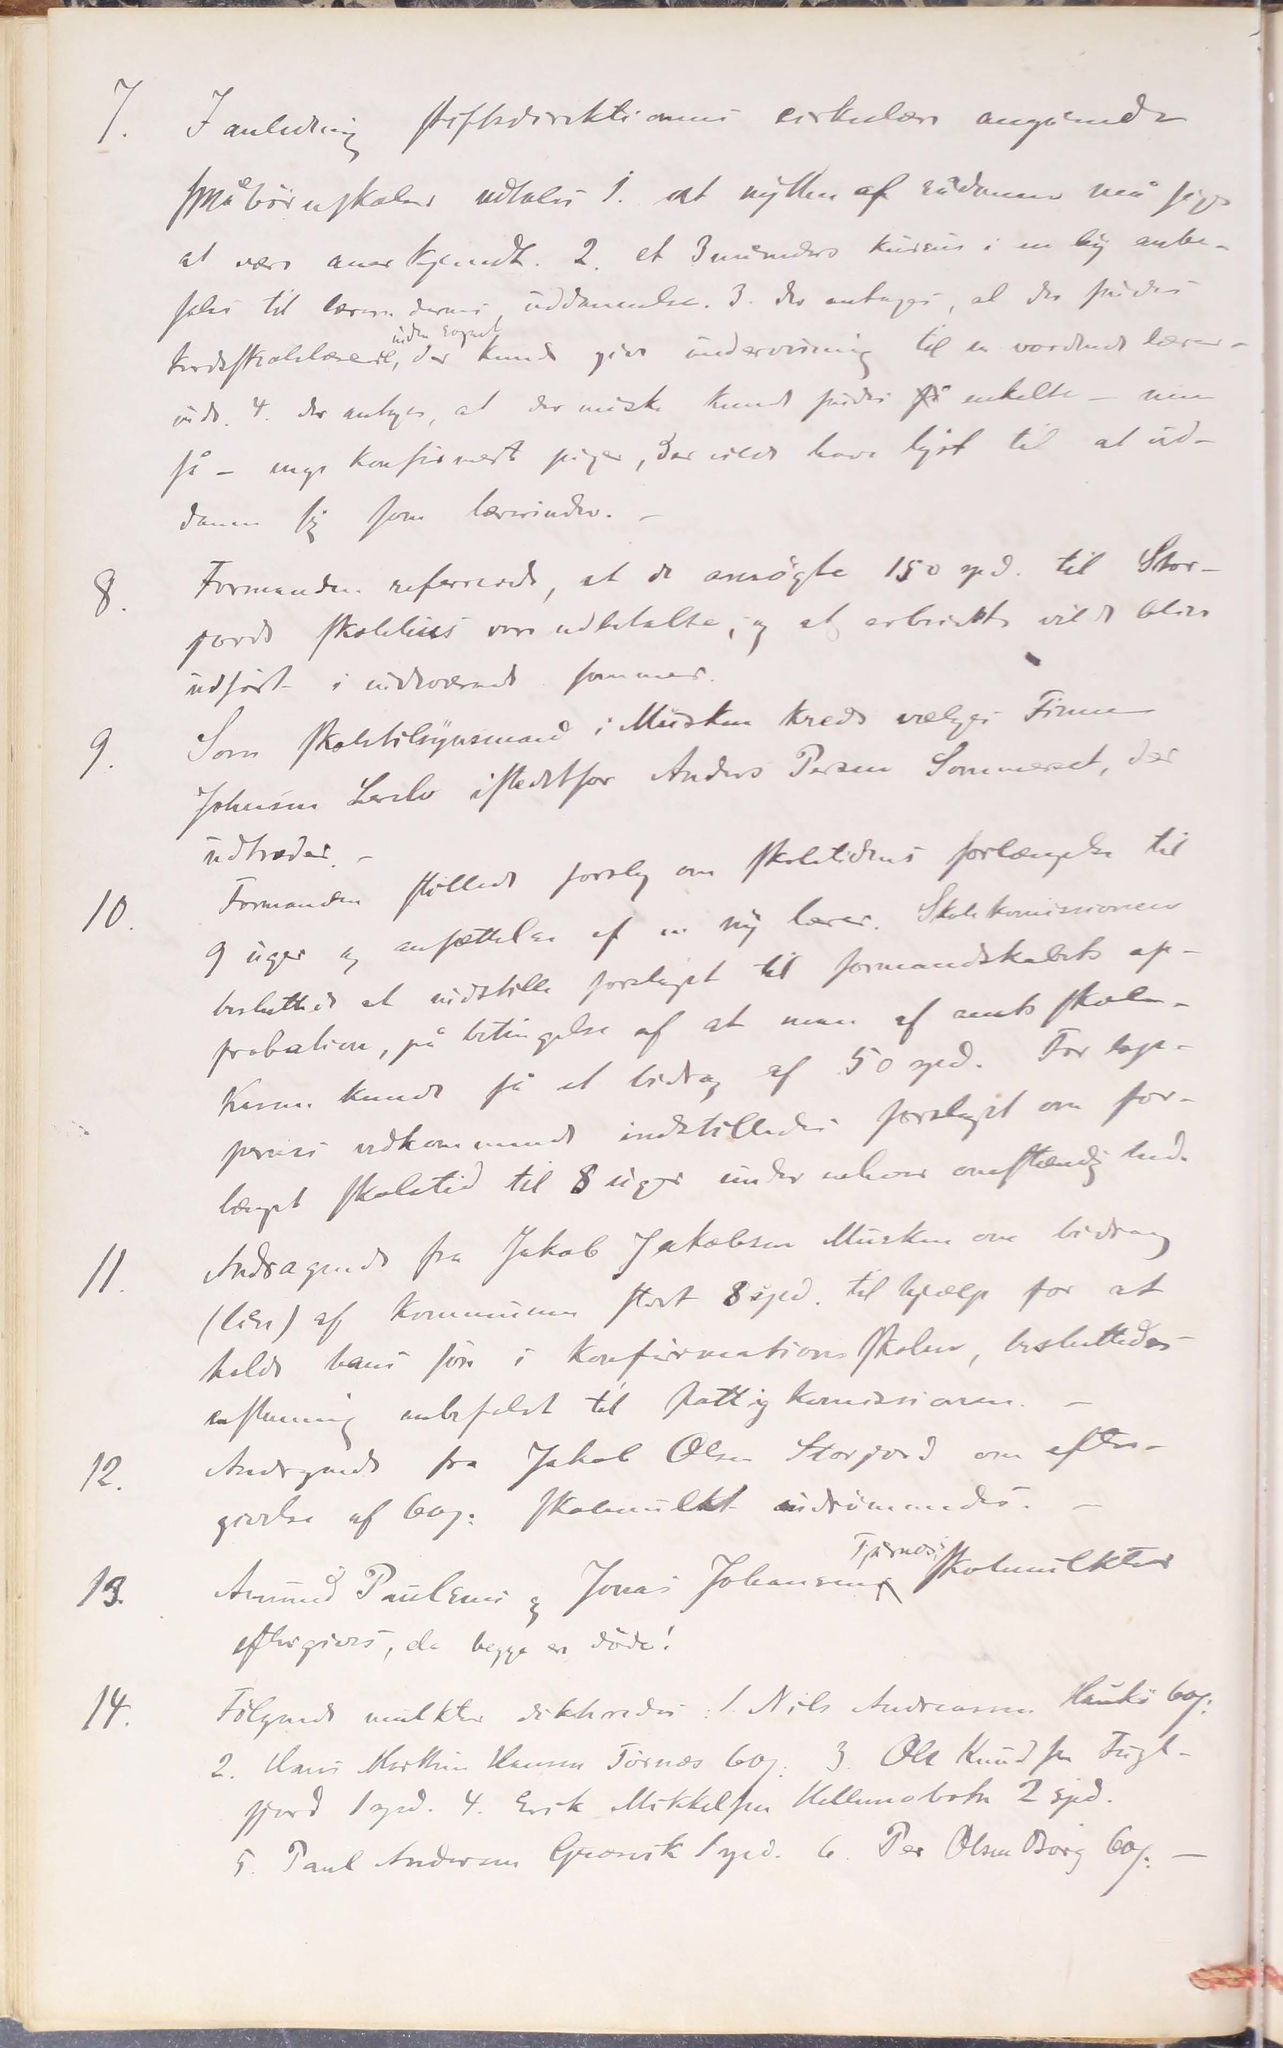 7. I anledning stiftsdirektionens cirkulære angående
småbörnskoler udtales 1. at nytten af sådanne må siges
at være anerkjendt. 2. et 3 måneders kursus i en by anbe-
fales til lærerindernes uddannelse. 3. der antages, at der findes
kredsskolelærere, der kunde give undervisning til en vordende lærer-
inde. 4. der antages, at der måske kunde findes enkelte - men
få - unge konfirmerte piger, der vilde have lyst til at ud-
danne sig som lærerinder. -
8. Formanden refererede, at de ansögte 150 spd. til Stor-
jords skolehus vare udbetalte, og at arbeidet vilde blive
udfört i indeværende sommer.
9. Som skoletilsynsmand i Musken kreds vælges Finn
Johnsen istedetfor Anders Persen Sommerset, der
udtræder. -
10. Formanden stillede forslag om skoletidens forlængelse til
9 uger og ansættelse af en ny lærer. Skolekomissionen
besluttede at indstille forslaget til formandskabets ap-
probation, på betingelse af at man af amts skole-
kassen kunde få et bidrag af 50 spd. For
vedkommende indstilledes forslaget om for-
længet skoletid til 8 uger under enhver omstændighed.
11. Andragende fra Jakob Jakobsen Musken om bidrag
(lån) af kommunen stort 8 spd. til hjælp for at
holde hans sön i konfirmationsskolen, besluttedes
enstemmig anbefalet til fattigkomissionen. -
12. Andragende fra Jakob Olsen Storjord om efter-
givelse af 60 s. skolemulkt indrömmedes. -
13. Amund Paulsens og Jonas Johansens Tjernes skolemulkter
eftergives, da begge er döde!
14. Fölgende mulkter dekreredes: 1. Nils Andreassen Haukö 60 s.
2. Hans Martin Hansen Törnæs 60 s. 3. Ole Knudsen Fugl-
fjord 1 spd. 4. Erik Mikkelsen Hellemobotn 2 spd.
5. Paul Andersen Grovsvik 1 spd. 6. Per Olsen Borg 60 s. -